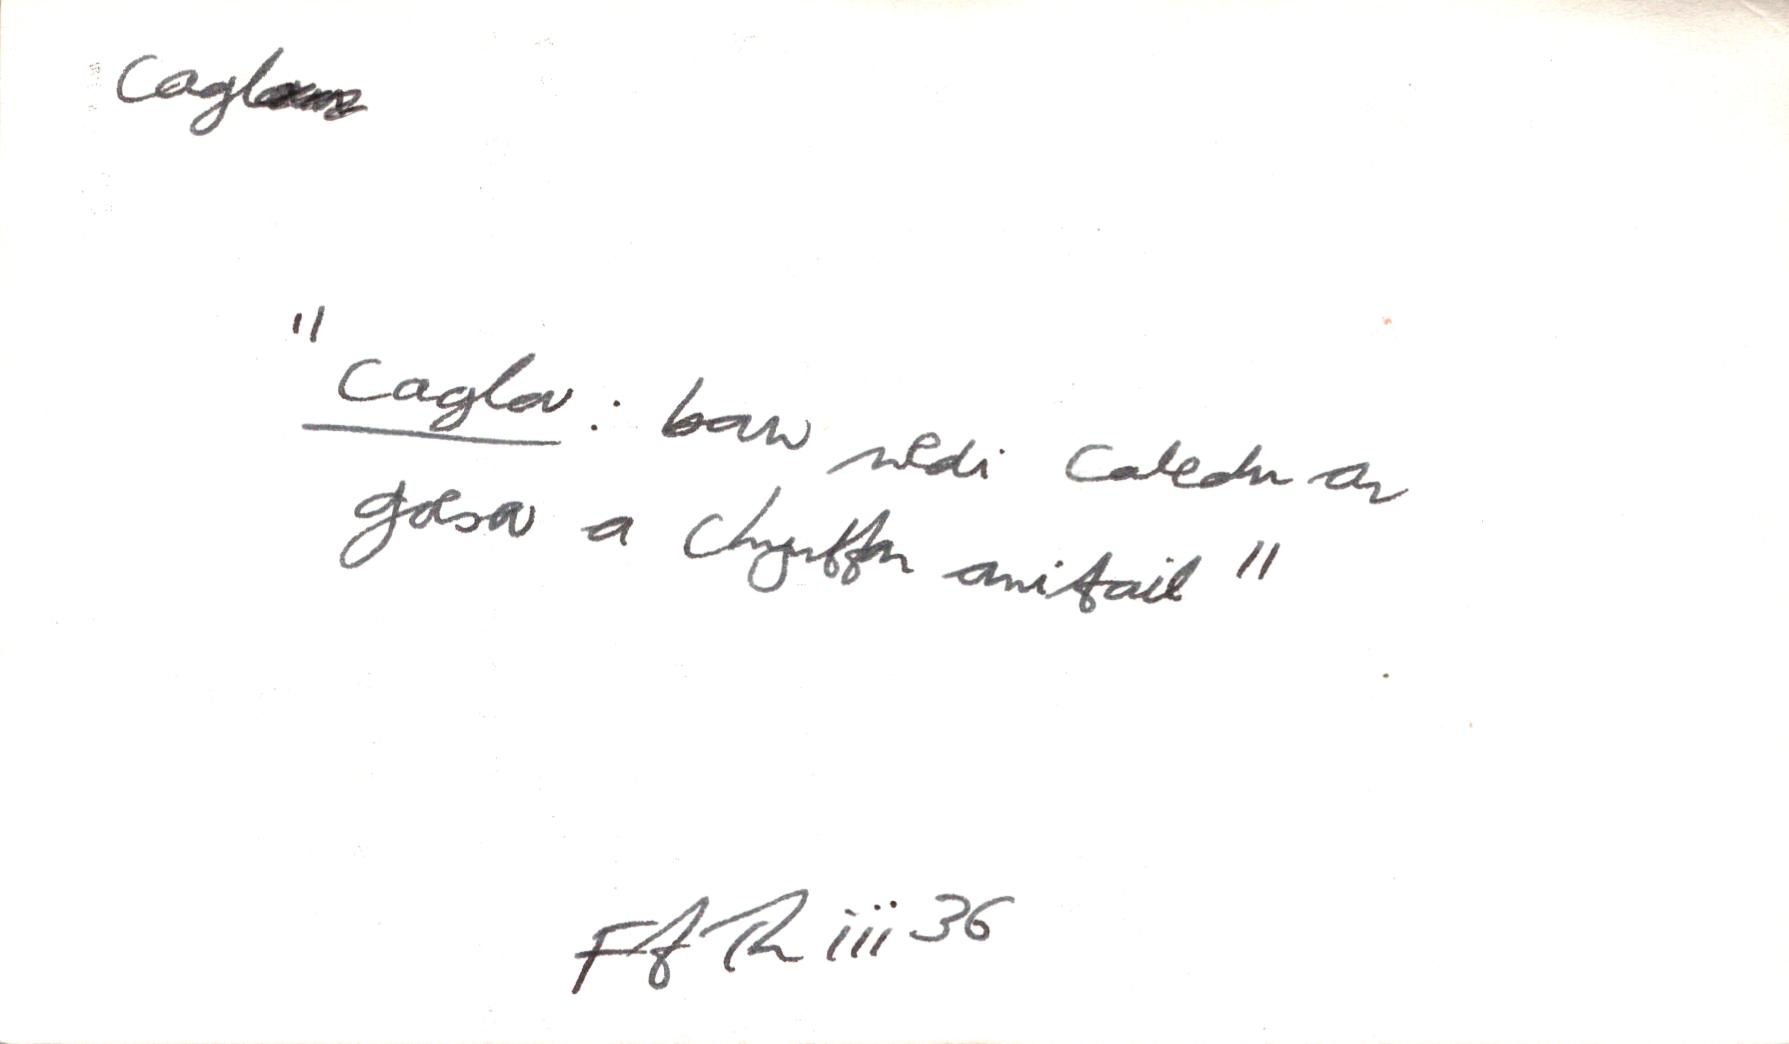 Caglau
"Caglau: baw wedi caledu ar
goesau a chynffon anifail"
Ff Th iii 36